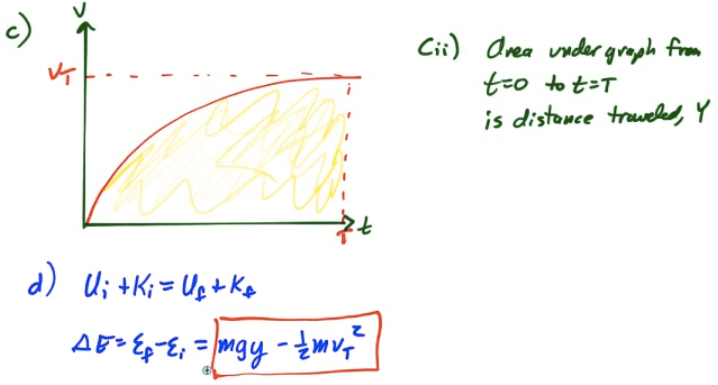 c)
v
v_T
t
T
Cii) Area under graph from
t=0 to t=T
is distance traveled, Y
d) U_i + K_i = U_f + K_f
ΔE = E_f - E_i = mgy - ½mv_T²